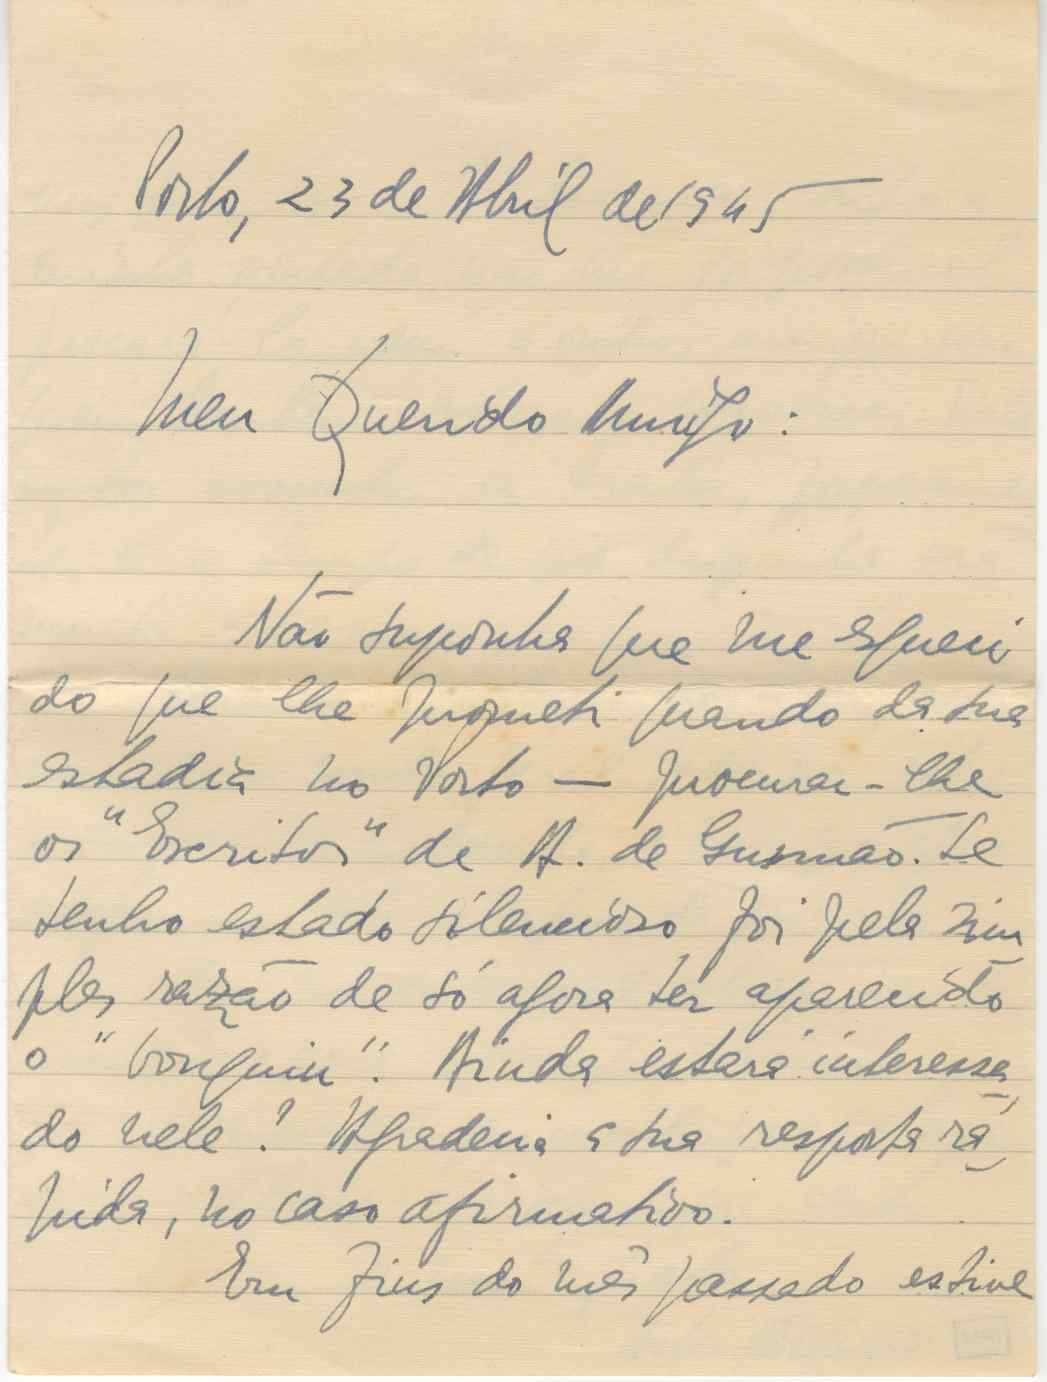 Porto, 23 de Abril de 1945
Meu Querido Amigo:
Não suponha que me esqueci
do que lhe prometi quando da sua
estadia no Porto — procurar-lhe
os "Escritos" de A. de Gusmão. Se
tenho estado silencioso foi pela sim
ples razão de só agora ter aparecido
o " ". Ainda estará interessa
do nele? Agradecia a sua resposta rá
pida, no caso afirmativo.
Em fins do mês passado estive